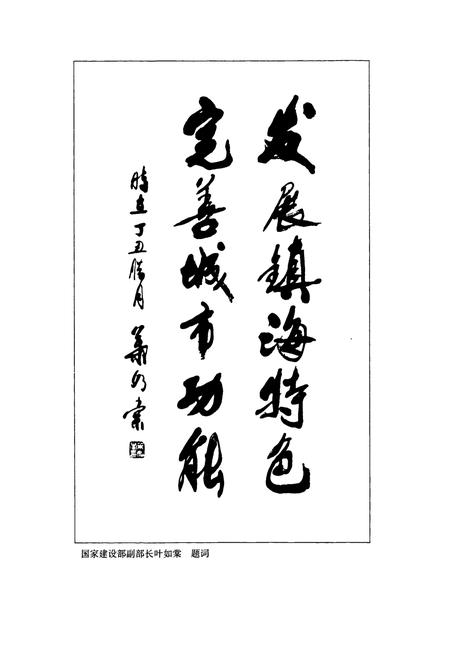 发展鎮海特色
完善城市功能
時在丁丑腊月 葉如棠
国家建设部副部长叶如棠 题词